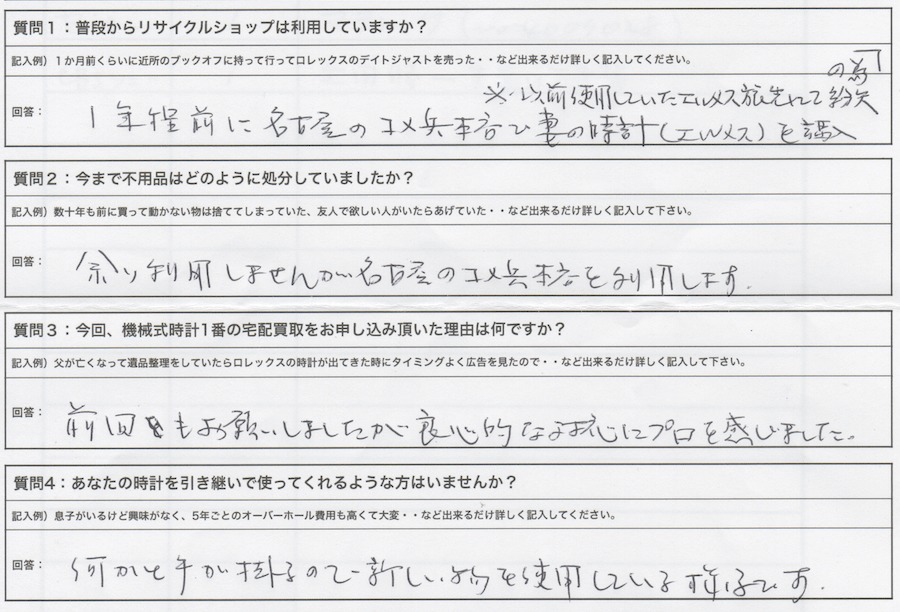 質問１：普段からリサイクルショップは利用していますか？
記入例）１か月前くらいに近所のブックオフに持って行ってロレックスのデイトジャストを売った・・など出来るだけ詳しく記入してください。
の為
※以前使用していたエルメス旅先にて紛失
回答： １年程前に名古屋のコメ兵本店で妻の時計（エルメス）を購入
質問２：今まで不用品はどのように処分していましたか？
記入例）数十年も前に買って動かない物は捨ててしまっていた、友人で欲しい人がいたらあげていた・・など出来るだけ詳しく記入して下さい。
回答： 余り利用しませんが名古屋のコメ兵本店を利用します．
質問３：今回、機械式時計1番の宅配買取をお申し込み頂いた理由は何ですか？
記入例）父が亡くなって遺品整理をしていたらロレックスの時計が出てきた時にタイミングよく広告を見たので・・など出来るだけ詳しく記入して下さい。
回答： 前回もお願いしましたが良心的な対応にプロを感じました。
質問4：あなたの時計を引き継いで使ってくれるような方はいませんか？
記入例）息子がいるけど興味がなく、5年ごとのオーバーホール費用も高くて大変・・など出来るだけ詳しく記入してください。
回答： 何かと手が掛るので新しい物を使用している様子です．